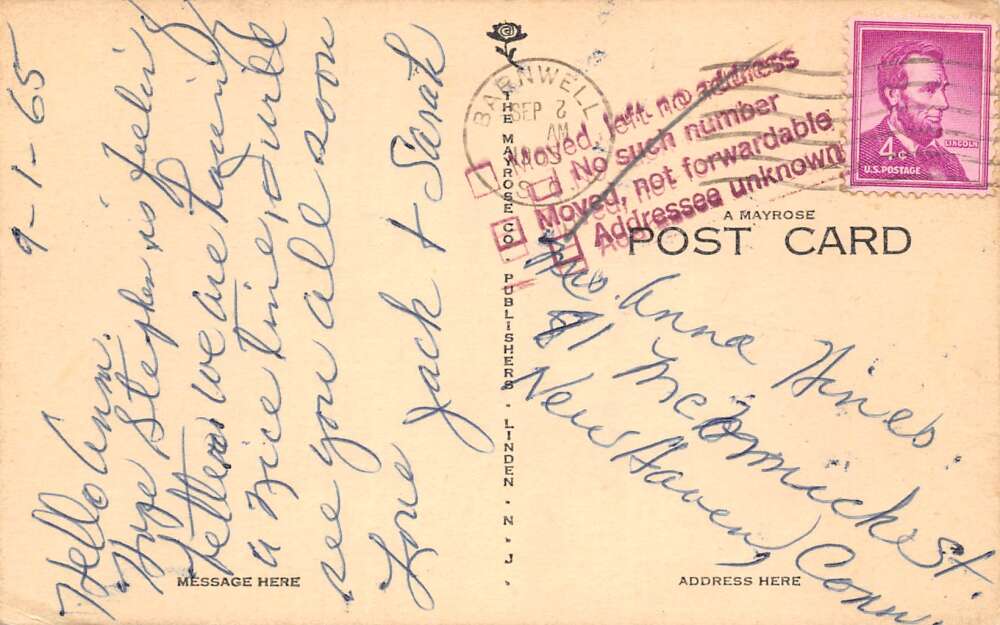 9-1-65
Hello Ann.
Hope Stephen is feeling
better. we are having
a nice time, & will
see you all soon
Love
Jack + Sarah
MESSAGE HERE
THE MAYROSE CO. PUBLISHERS - LINDEN - N. J.
BARNWELL
SEP 2
AM
Moved, left no address
No such number
Moved, not forwardable
Addressee unknown
LINCOLN
4c
U.S. POSTAGE
A MAYROSE
POST CARD
Mrs. Anna Hines.
81 McCormick st.
New Haven, Conn.
ADDRESS HERE